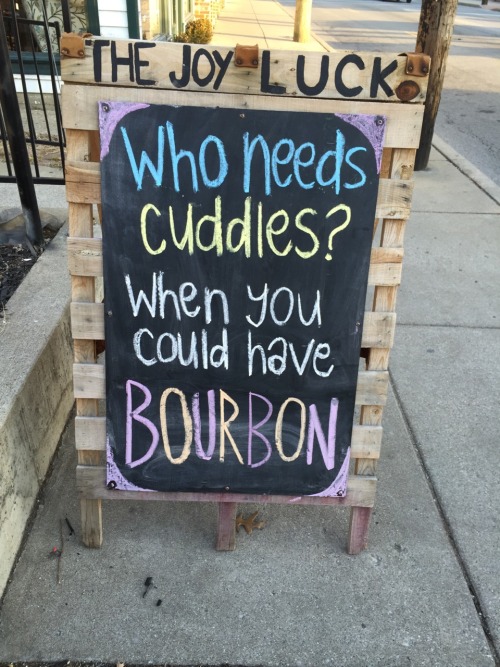 THE JOY LUCK
Who needs
cuddles?
When you
could have
BOURBON